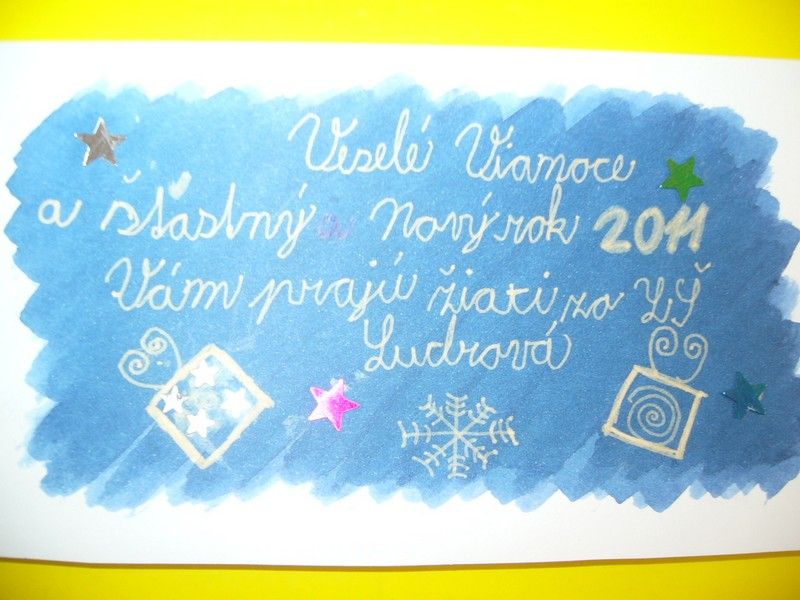 Veselé Vianoce
a šťastný nový rok 2011
Vám prajú žiaci zo ZŠ
Ludrová